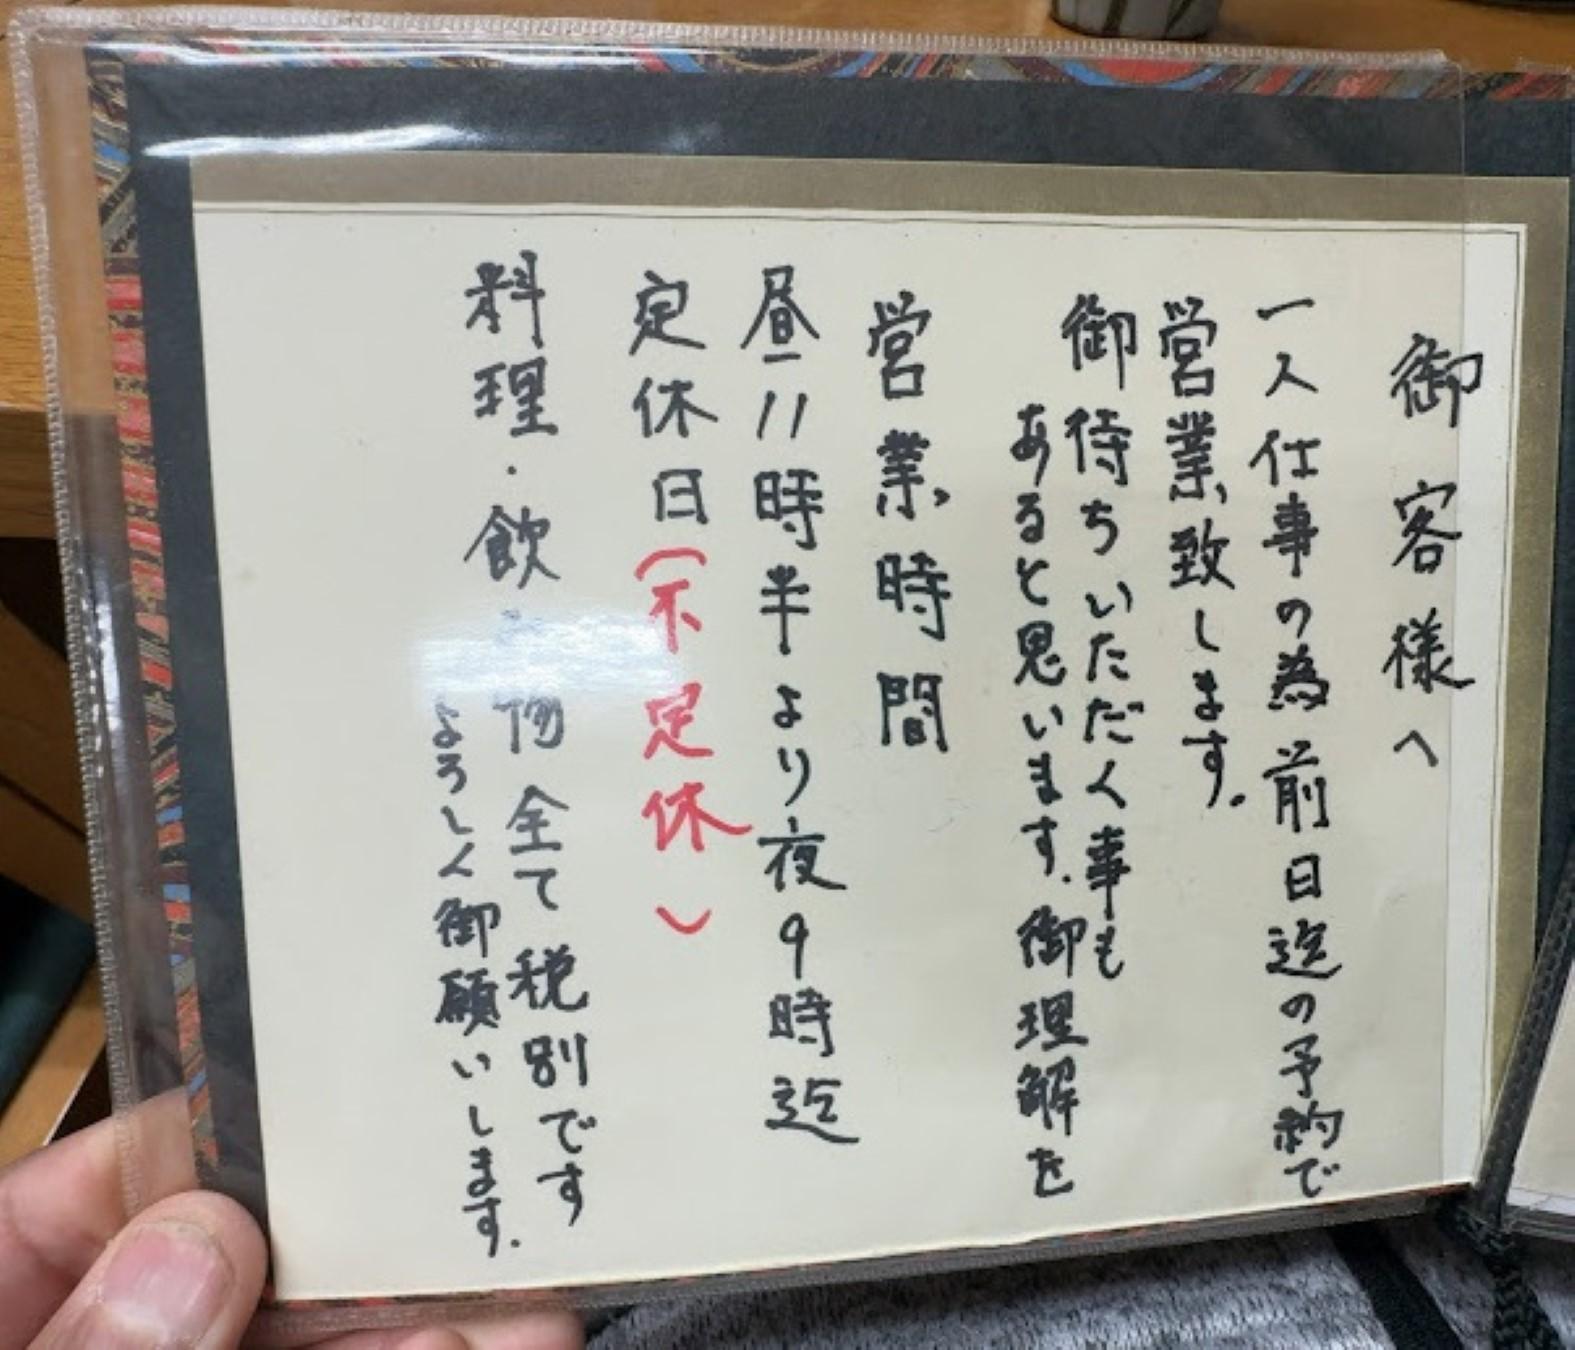 御客様へ
一人仕事の為前日迄の予約で
営業致します.
御待ちいただく事も
あると思います.御理解を
営業時間
昼11時半より夜9時迄
定休日(不定休)
料理・飲み物全て税別です
よろしく御願いします.